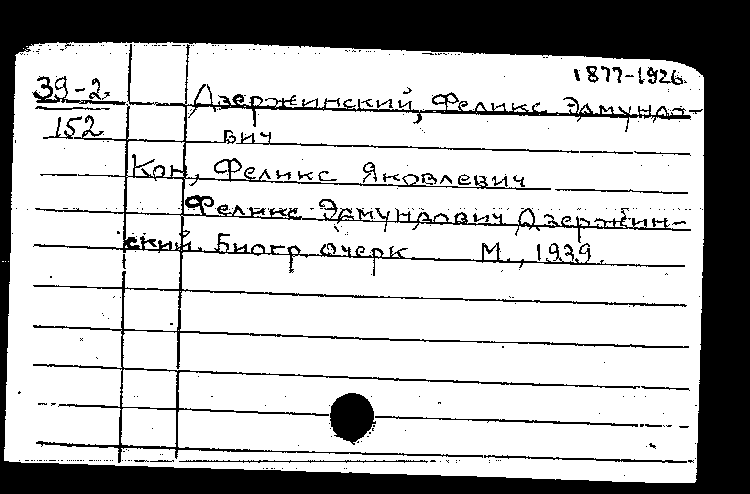 1877-1926
39-2
Дзержинский, Феликс Эдмундо-
152
вич
Кон, Феликс Яковлевич
Феликс Эдмундович Дзержин-
ский. Биогр. очерк М., 1939.